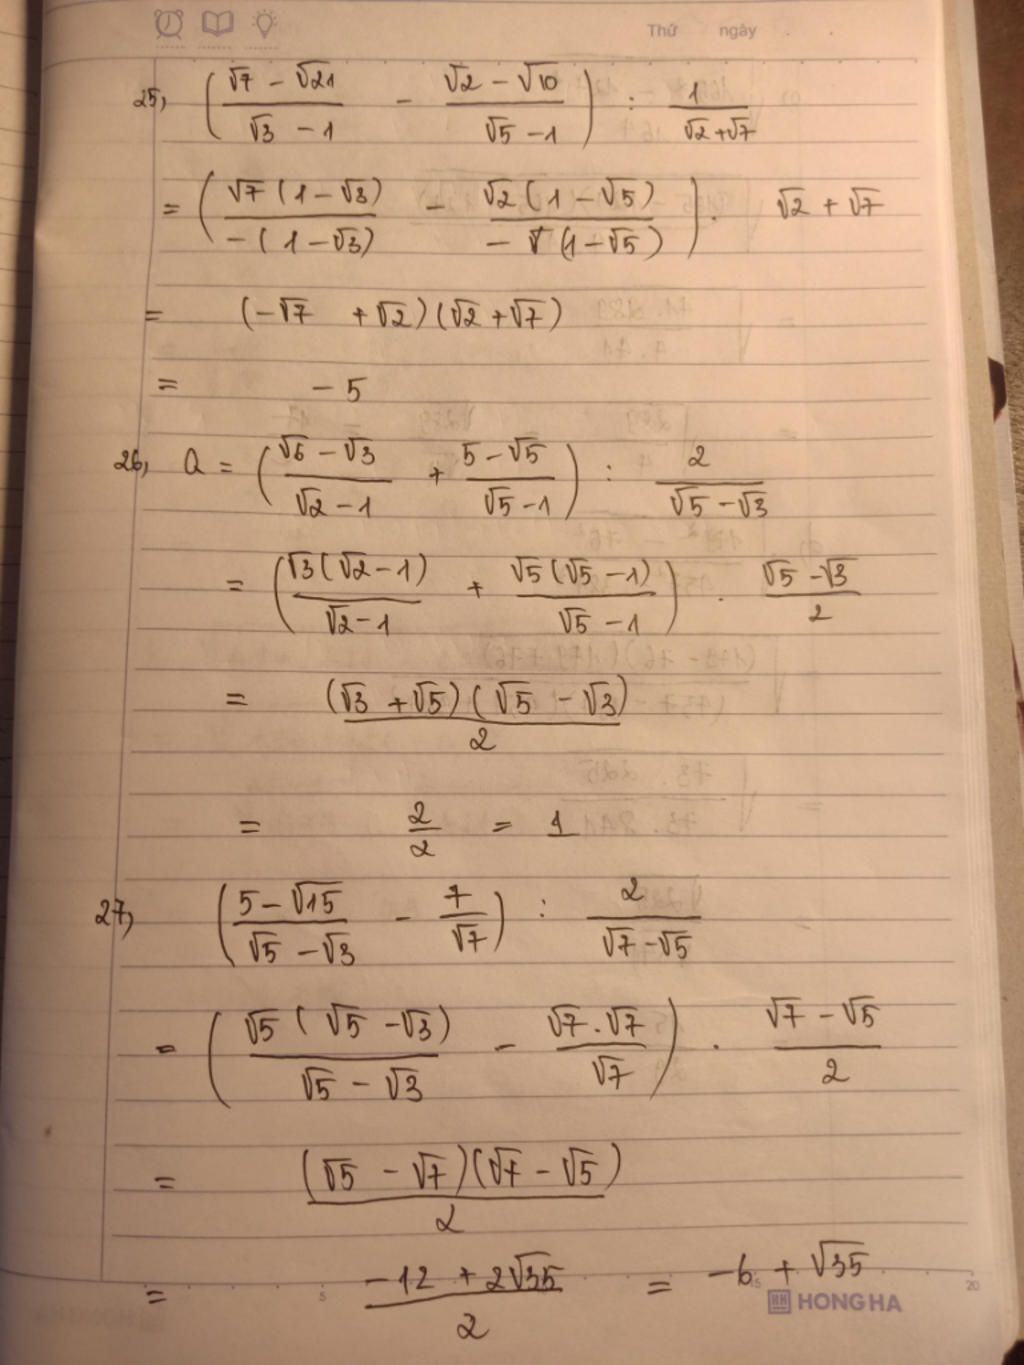 Thứ ngày
25, ( (√7 - √21)/(√3 - 1) - (√2 - √10)/(√5 - 1) ) : 1/(√2 + √7)
= ( √7 (1 - √3)/(-(1 - √3)) - √2 (1 - √5)/(-(1 - √5)) ) . √2 + √7
= (-√7 + √2) (√2 + √7)
= - 5
26, Q = ( (√6 - √3)/(√2 - 1) + (5 - √5)/(√5 - 1) ) : 2/(√5 - √3)
= ( √3 (√2 - 1)/(√2 - 1) + √5 (√5 - 1)/(√5 - 1) ) . (√5 - √3)/2
= (√3 + √5) (√5 - √3)/2
= 2/2 = 1
27, ( (5 - √15)/(√5 - √3) - 7/√7 ) : 2/(√7 - √5)
= ( √5 (√5 - √3)/(√5 - √3) - √7 . √7/√7 ) . (√7 - √5)/2
= (√5 - √7) (√7 - √5)/2
= (-12 + 2√35)/2 = -6 + √35
5 15 20
HONG HA